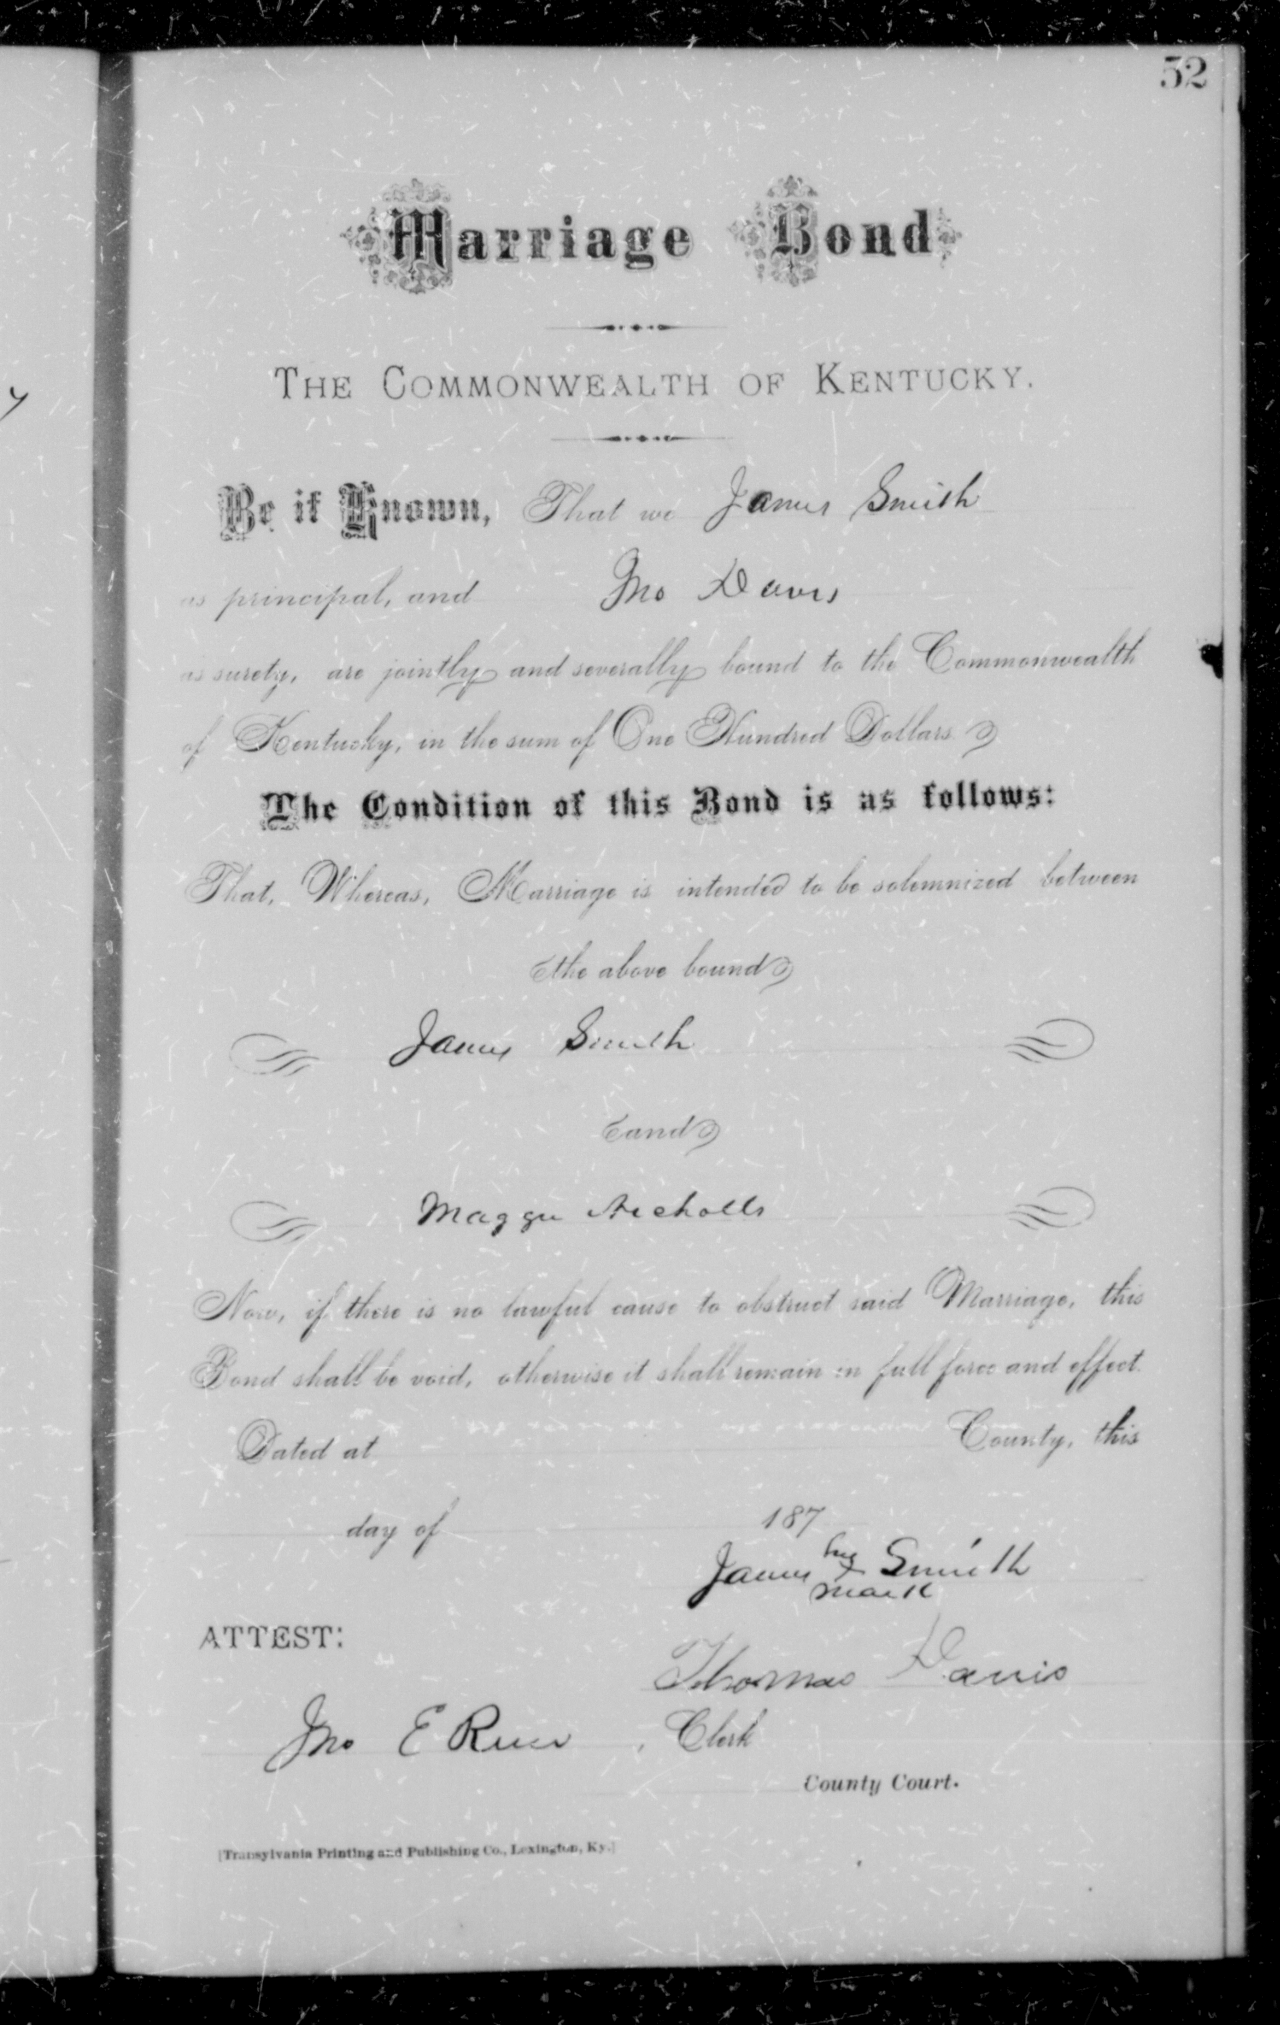 52
Marriage Bond
THE COMMONWEALTH OF KENTUCKY.
Be it Known, That we James Smith
as principal, and Jno Davis
as surety, are jointly and severally bound to the Commonwealth
of Kentucky, in the sum of One Hundred Dollars.
The Condition of this Bond is as follows:
That, Whereas, Marriage is intended to be solemnized between
the above bound
James Smith
and
Maggie Nicholls
Now, if there is no lawful cause to obstruct said Marriage, this
Bond shall be void, otherwise it shall remain in full force and effect.
Dated at County, this
day of 187
James his x mark Smith
ATTEST:
Thomas Davis
Jno E , Clerk
County Court.
[Transylvania Printing and Publishing Co., Lexington, Ky.]